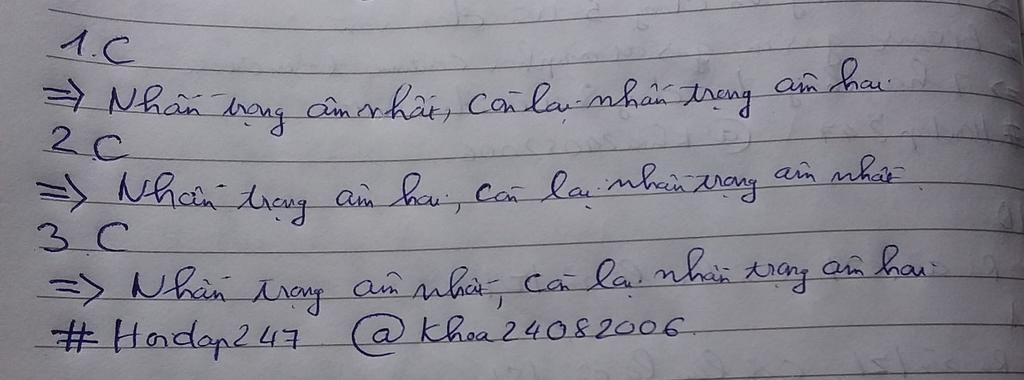 1. C
=> Nhấn trọng âm nhất, còn lại nhấn trọng âm hai.
2. C
=> Nhấn trọng âm hai, còn lại nhấn trọng âm nhất
3. C
=> Nhấn trọng âm nhất, còn lại nhấn trọng âm hai.
# Hoidap247 @ Khoa24082006